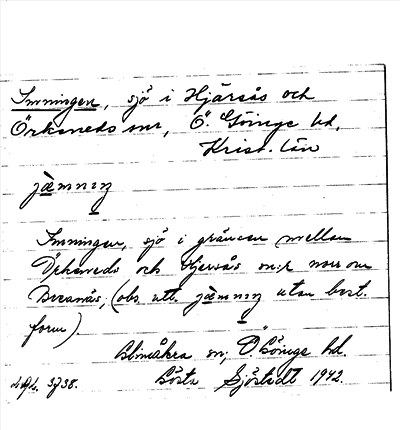 Immingen, sjö i Hjärsås och
Örkeneds snr, Ö. Göinge hd,
Krist. län
jæmnıŋ
Immingen, sjö i gränsen mellan
Örkeneds och Hjersås sn:r norr om
(obs. utt. jæmnıŋ utan best.
form).
Glimåkra sn; Ö. Göinge hd.
Gösta Sjöstedt 1942.